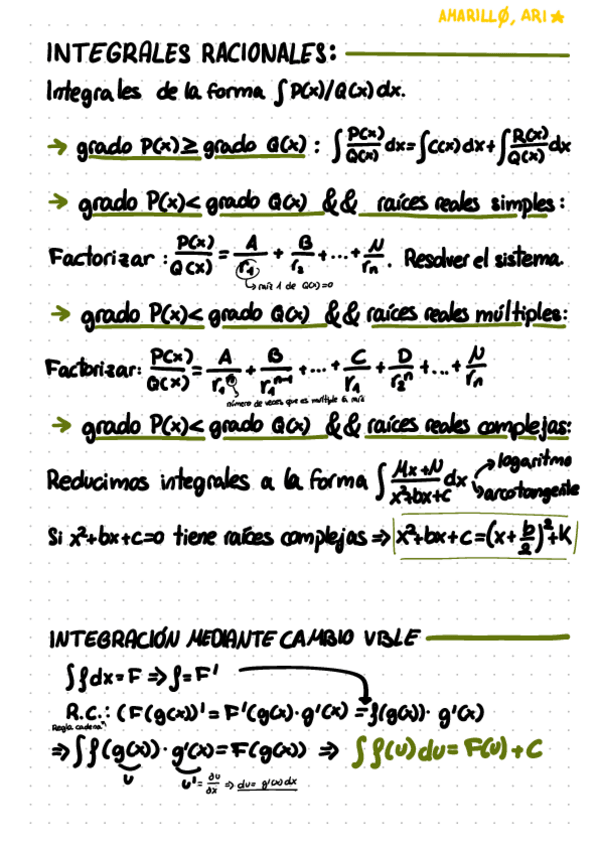 AMARILLO, ARI★
INTEGRALES RACIONALES:
Integrales de la forma ∫P(x)/Q(x)dx.
→ grado P(x)≥grado Q(x): ∫P(x)/Q(x) dx=∫C(x)dx+∫R(x)/Q(x) dx
→ grado P(x)<grado Q(x) && raíces reales simples:
Factorizar: P(x)/Q(x) = A/r₁ + B/r₂ + ... + N/rₙ. Resolver el sistema.
↳ raíz 1 de Q(x)=0
→ grado P(x)<grado Q(x) && raíces reales múltiples:
Factorizar: P(x)/Q(x) = A/r₁ⁿ + B/r₁ⁿ⁻¹ + ... + C/r₁ + D/r₂ⁿ + ... + N/rₙ
número de veces que es múltiple la raíz
→ grado P(x)<grado Q(x) && raíces reales complejas:
Reducimos integrales a la forma ∫ Mx+N/x²+bx+c dx → logaritmo
↘ arcotangente
Si x²+bx+c=0 tiene raíces complejas ⇒ x²+bx+c=(x+b/2)²+K
INTEGRACIÓN MEDIANTE CAMBIO VBLE
∫f dx=F ⇒ f=F'
R.C.: (F(g(x))'=F'(g(x)·g'(x) =f(g(x))·g'(x)
Regla cadena
⇒∫f(g(x))·g'(x)=F(g(x)) ⇒ ∫f(u)du=F(u)+C
u u'=∂u/∂x ⇒ du=g'(x)dx